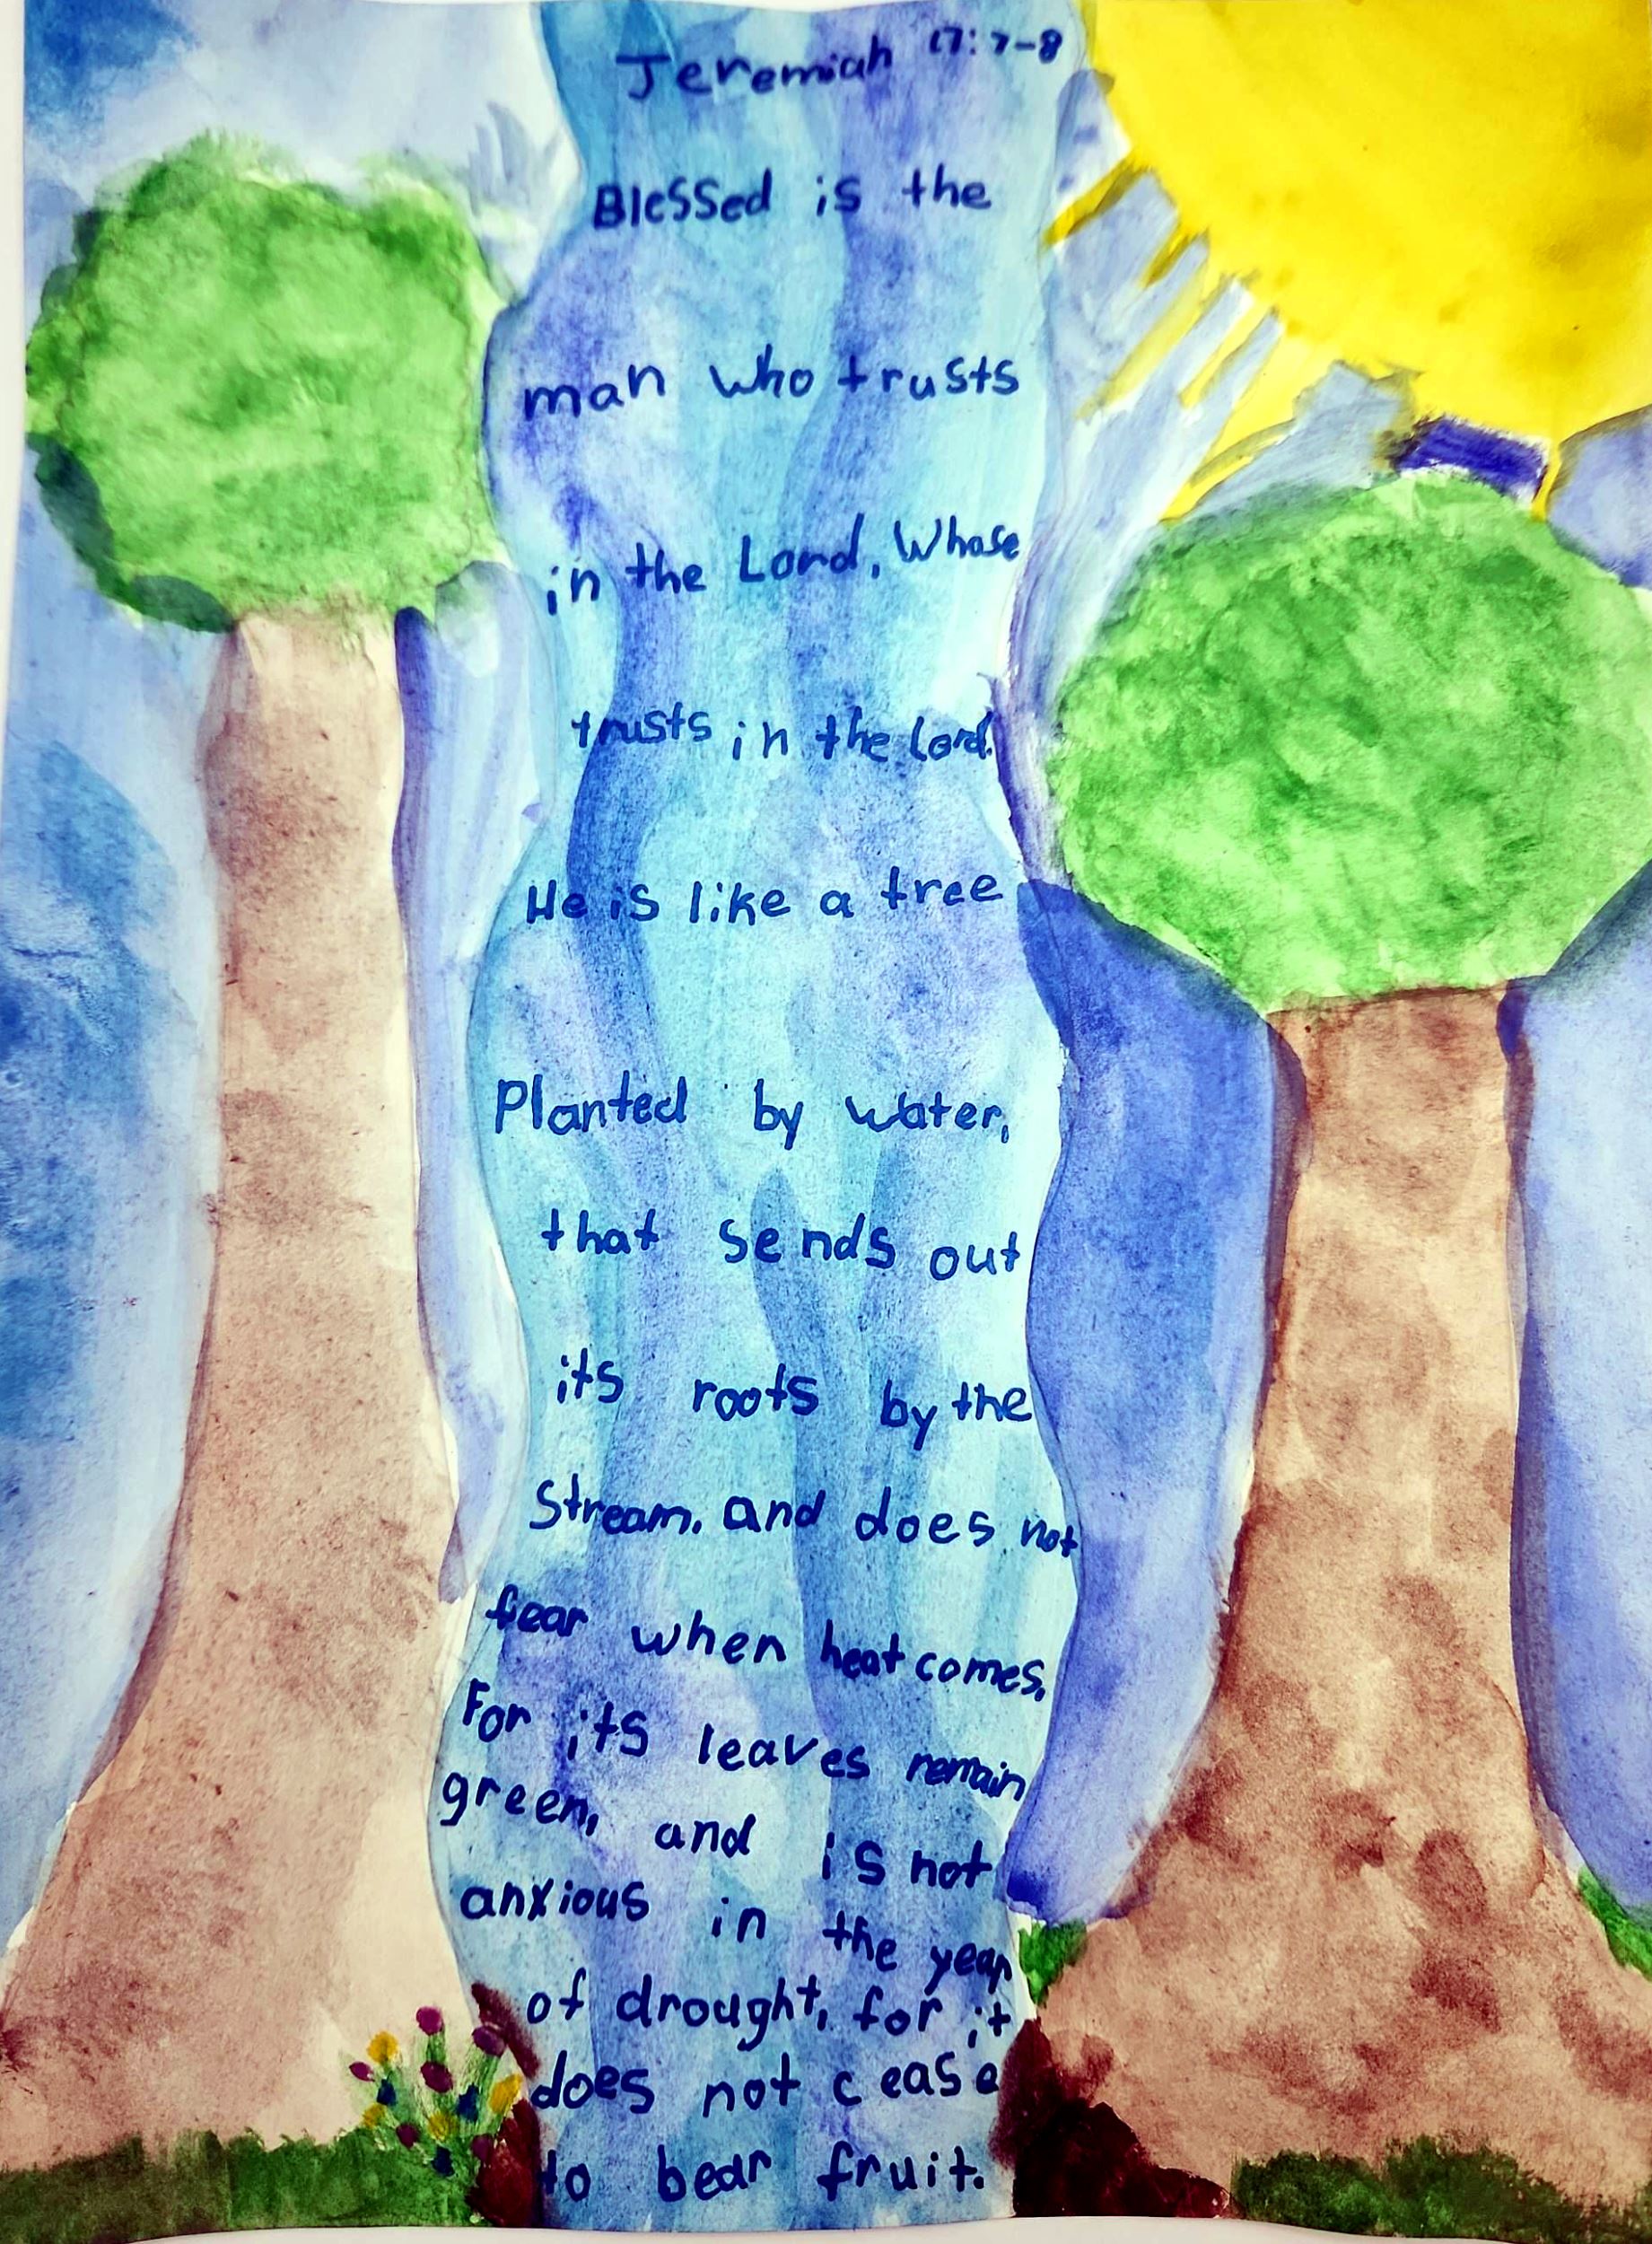 Jeremiah 17:7-8
Blessed is the
man who trusts
in the Lord, Whose
trusts in the Lord.
He is like a tree
Planted by water,
that sends out
its roots by the
Stream. and does not
fear when heat comes.
For its leaves remain
green, and is not
anxious in the year
of drought, for it
does not cease
to bear fruit.